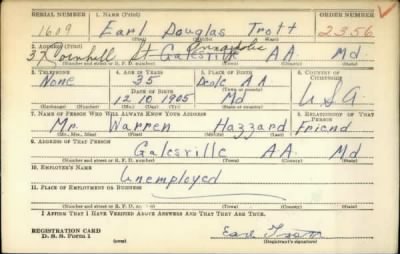 SERIAL NUMBER 1. NAME (Print) ORDER NUMBER
1609 Earl Douglas Trott 2356
(First) (Middle) (Last)
2. ADDRESS (Print) Annapolis
37 Cornhill St Galesville A A. Md
(Number and street or R. F. D. number) (Town) (County) (State)
3. TELEPHONE 4. AGE IN YEARS 5. PLACE OF BIRTH 6. COUNTRY OF CITIZENSHIP
None 35 Deale A A
DATE OF BIRTH
12 10 1905 Md USA
(Exchange) (Number) (Mo.) (Day) (Yr.) (State or country)
7. NAME OF PERSON WHO WILL ALWAYS KNOW YOUR ADDRESS 8. RELATIONSHIP OF THAT PERSON
Mr. Warren Hazzard Friend
(Mr., Mrs., Miss) (First) (Middle) (Last)
9. ADDRESS OF THAT PERSON
Galesville AA. Md
(Number and street or R. F. D. number) (Town) (County) (State)
10. EMPLOYER'S NAME
Unemployed
11. PLACE OF EMPLOYMENT OR BUSINESS
(Number and street or R. F. D. number) (Town) (County) (State)
I AFFIRM THAT I HAVE VERIFIED ABOVE ANSWERS AND THAT THEY ARE TRUE.
REGISTRATION CARD
D. S. S. Form 1 (over) Earl Trott
(Registrant's signature)